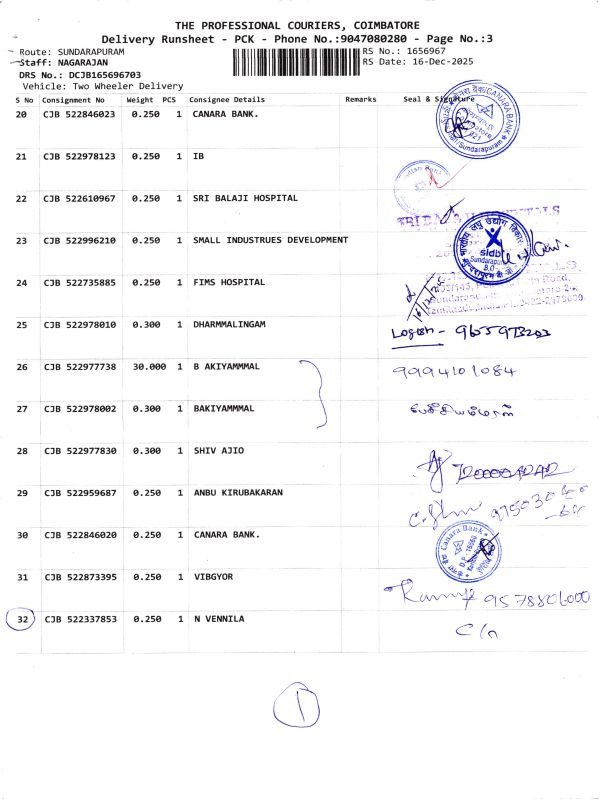 THE PROFESSIONAL COURIERS, COIMBATORE
Delivery Runsheet - PCK - Phone No.:9047080280 - Page No.:3
Route: SUNDARAPURAM
RS No.: 1656967
Staff: NAGARAJAN
RS Date: 16-Dec-2025
DRS No.: DCJB165696703
Vehicle: Two Wheeler Delivery
S No Consignment No Weight PCS Consignee Details Remarks Seal & Signature
20 CJB 522846023 0.250 1 CANARA BANK.
21 CJB 522978123 0.250 1 IB
22 CJB 522610967 0.250 1 SRI BALAJI HOSPITAL
23 CJB 522996210 0.250 1 SMALL INDUSTRUES DEVELOPMENT
sidbi
24 CJB 522735885 0.250 1 FIMS HOSPITAL
25 CJB 522978010 0.300 1 DHARMMALINGAM
26 CJB 522977738 30.000 1 B AKIYAMMMAL 9994101084
27 CJB 522978002 0.300 1 BAKIYAMMMAL
28 CJB 522977830 0.300 1 SHIV AJIO
29 CJB 522959687 0.250 1 ANBU KIRUBAKARAN
30 CJB 522846020 0.250 1 CANARA BANK. Canara Bank
31 CJB 522873395 0.250 1 VIBGYOR
32 CJB 522337853 0.250 1 N VENNILA
1